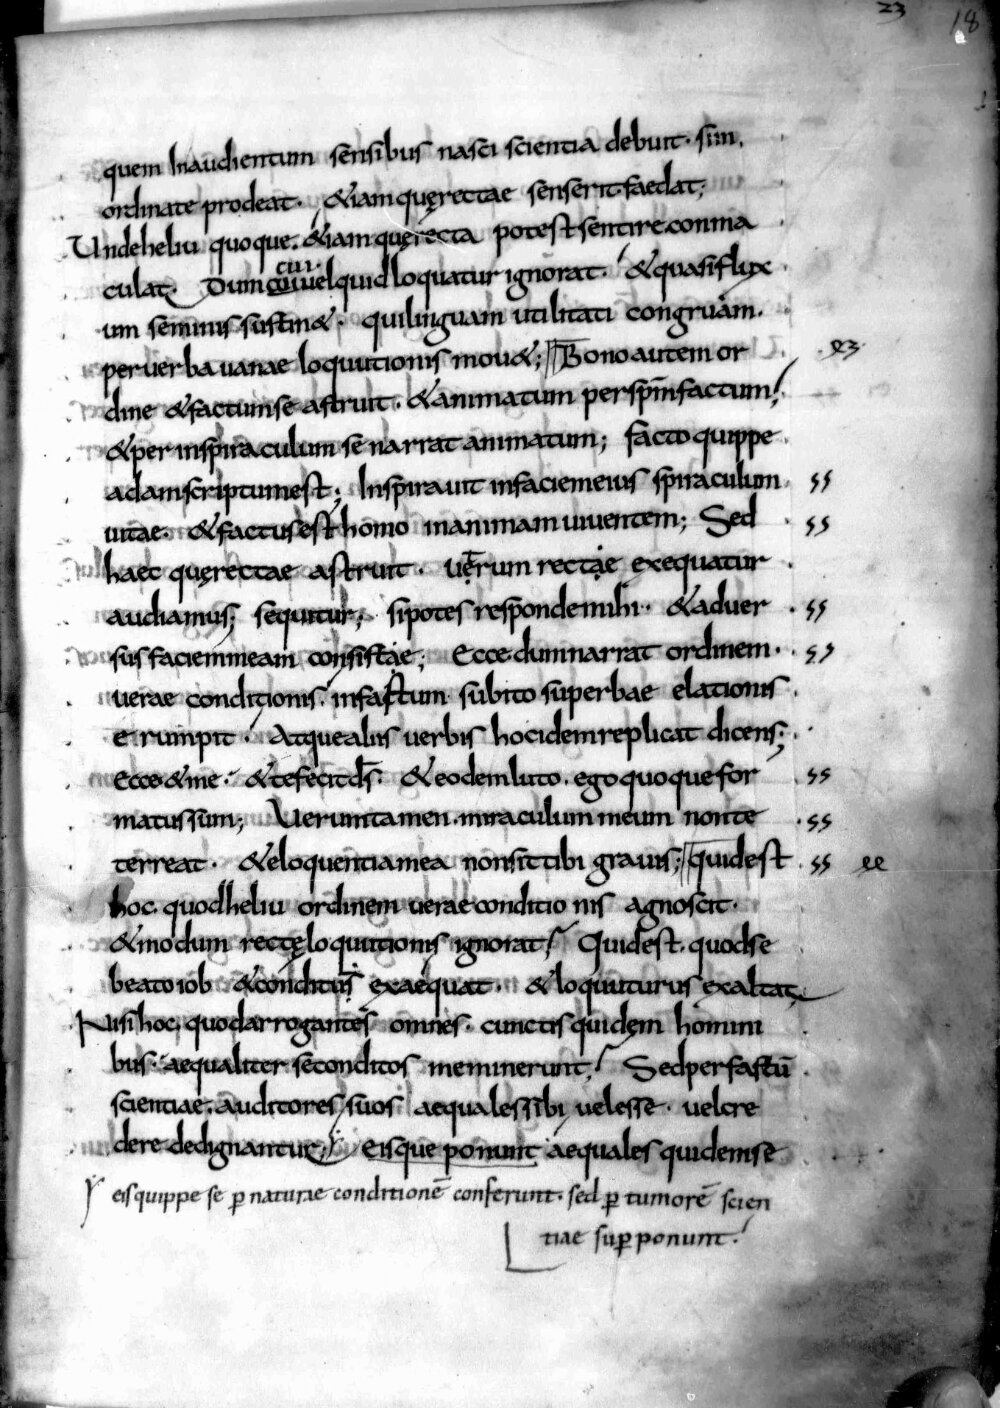 23 18
quem Inaudientum sensibus nasci scientia debuit · sim,
ordinate prodeat · &iam quęrectae senserit faedat;
Undeheliu quoque · &iam quęrecta potest sentire · conma
cui
culat · Dum cui uelquid loquatur ignorat · & quasi flux
um seminis sustin& · qui linguam utilitati congruam ·
per uerba uanae loquutionis mou&; Bono autem or
dine & factum se astruit · & animatum per sp̄m factum
& per inspiraculum se narrat animatum; facto quippe
adam scriptum est; Inspirauit in faciem eius spiraculum ss
uitae · & factus est homo in animam uiuentem; Sed ss
haec quęrectae astruit · uerum rectae exequatur
audiamus; sequitur; si potes responde mihi · & aduer ss
sus faciem meam consiste; Ecce dum narrat ordinem · ss
uerae conditionis · in fastum subito superbae elationis
erumpit · Atque aliis uerbis hoc idem replicat dicens;
Ecce & me · & te fecit d̄s · & eodem luto · ego quoque for ss
matus sum; Ueruntamen · miraculum meum non te ss
terreat · & eloquentia mea non sit tibi grauis; quid est ss
hoc · quod heliu ordinem uerae conditionis agnoscit ·
& modum rectę loquutionis ignorat · Quid est · quod se
beato iob & conditus exaequat · & loquuturus exaltat
Nisi hoc · quod arrogantes omnes · cunctis quidem homini
bus · aequaliter se conditos meminerunt · Sed per fastū
scientiae · auditores suos aequales sibi uel esse · uel cre
dere dedignantur; Eisque ponunt aequales quidem se
eis quippe se ꝑ naturae conditionē conferunt · sed ꝑ tumorē scien
tiae suꝑponunt ·